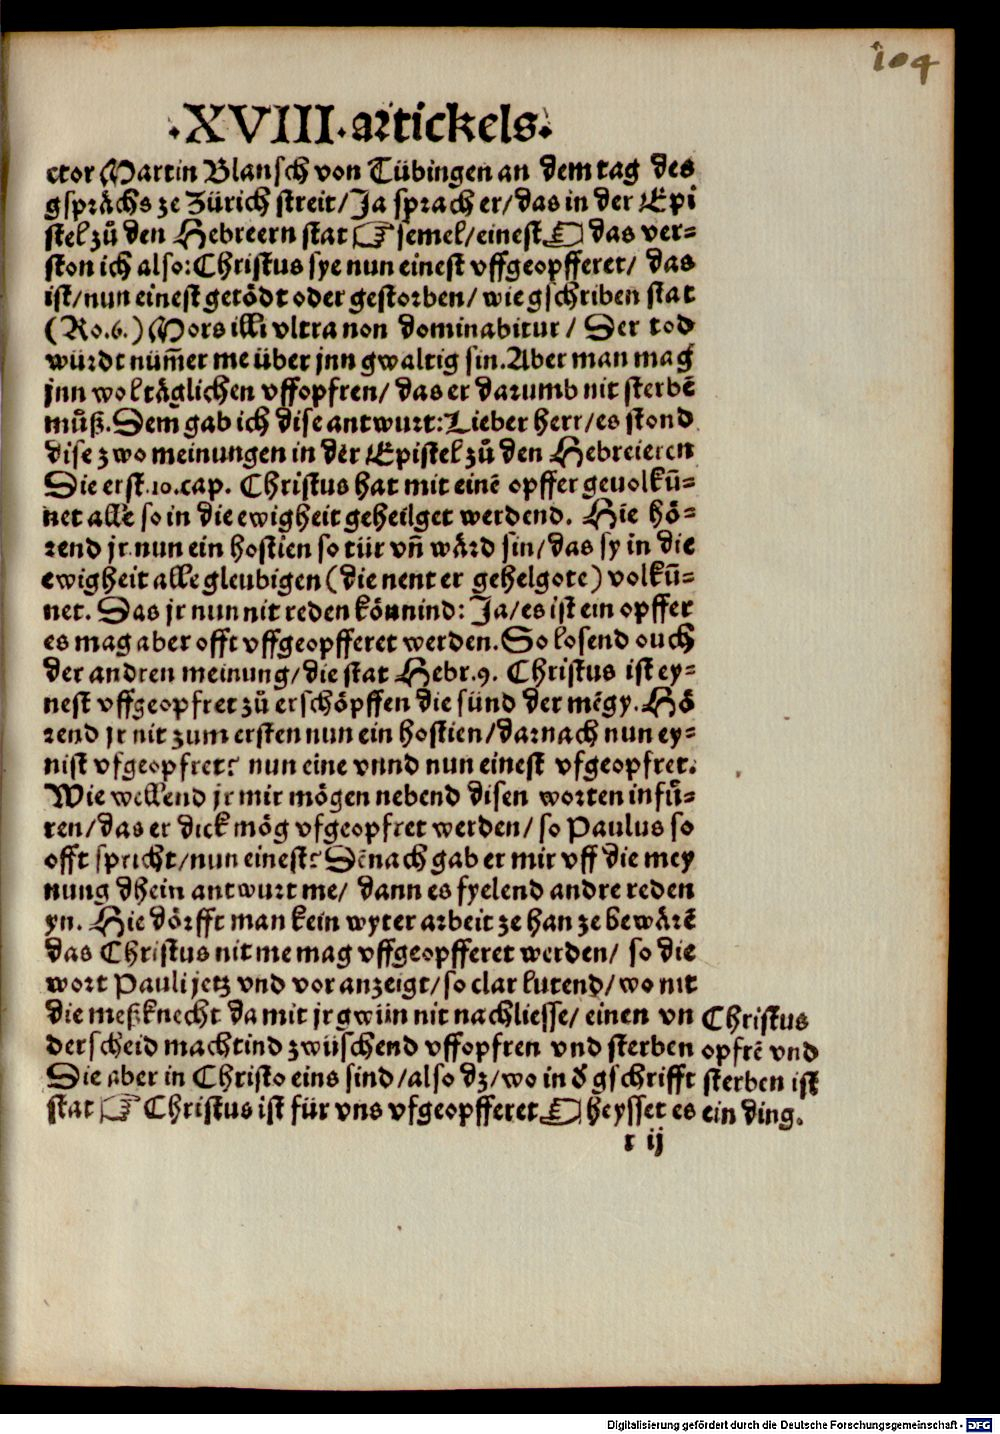 104
·XVIII·artickels·
ctor Martin Blansch von Tübingen an dem tag des
gsprächs ze Zürich streit/Ja sprach er/das in der Epi
stel zů den Hebreern stat ☞semel/einest☜ das ver-
ston ich also: Christus sye nun einest vffgeopfferet/ das
ist/nun einest getödt oder gestorben/ wie gschriben stat
(Ro.6.) Mors illi vltra non dominabitur / Der tod
würdt nüm̃er me über jnn gwaltig sin. Aber man mag
jnn wol täglichen vffopfren/ das er darumb nit sterbē
můß. Dem gab ich dise antwurt: Lieber herr/es stond
dise zwo meinungen in der Epistel zů den Hebreieren
Die erst .10.cap. Christus hat mit einē opffer geuolkū-
net alle so in die ewigheit geheilget werdend. Hie hö-
rend jr nun ein hostien so tür vñ wärd sin/das sy in die
ewigheit alle gleubigen (die nent er gehelgote) volkū-
net. Das jr nun nit reden könnind: Ja/es ist ein opffer
es mag aber offt vffgeopfferet werden. So losend ouch
der andren meinung/die stat Hebr.9. Christus ist ey-
nest vffgeopfret zů erschöpffen die sünd der mēgy. Hö
rend jr nit zum ersten nun ein hostien/darnach nun ey-
nist vfgeopfret? nun eine vnnd nun einest vfgeopfret.
Wie wellend jr mir mögen nebend disen worten infů-
ren/das er dick mög vfgeopfret werden/ so Paulus so
offt spricht/nun einest? Dēnach gab er mir vff die mey
nung dhein antwurt me/ dann es fyelend andre reden
yn. Hie dörfft man kein wyter arbeit ze han ze bewärē
das Christus nit me mag vffgeopfferet werden/ so die
wort Pauli jetz vnd vor anzeigt/so clar lutend/wo nit
die meßknecht damit jr gwün nit nachliesse/ einen vn
derscheid machtind zwüschend vffopfren vnd sterben
Die aber in Christo eins sind/also dz/wo in d' gschrifft
stat ☞Christus ist für vns vfgeopfferet☜ heysset es
Christus
opfrē vnd
sterben ist
ein ding.
r ij
Digitalisierung gefördert durch die Deutsche Forschungsgemeinschaft · DFG